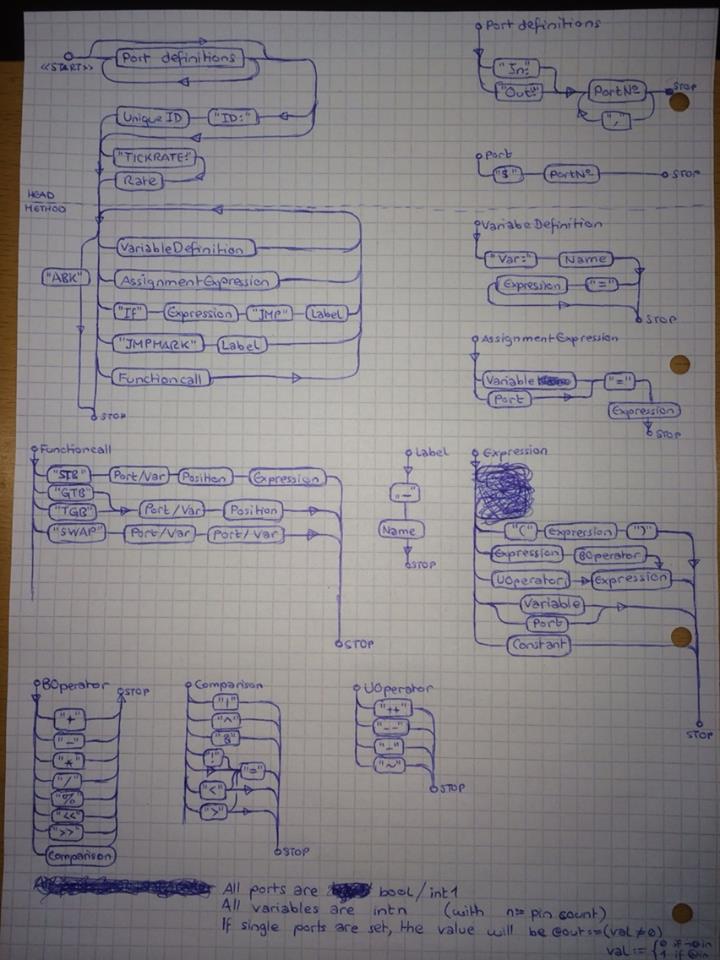 Port definitions
<<START>>
Port definitions
"In:"
"Out:"
PortNº
STOP
","
UniqueID "ID:"
"TICKRATE:"
Rate
Port
"$" PortNº STOP
HEAD
METHOD
VariableDefinition
"ABK"
AssignmentExpression
"If" Expression "JMP" Label
"JMPMARK" Label
Functioncall
STOP
Variabe Definition
"Var:" Name
Expression "="
STOP
AssignmentExpression
Variable "="
Port
Expression
STOP
Functioncall
"STB" Port/Var Position Expression
"GTB"
"TGB" Port/Var Position
"SWAP" Port/Var Port/Var
STOP
Label
"_"
Name
STOP
Expression
"(" Expression ")"
Expression BOperator
UOperator Expression
Variable
Port
Constant
STOP
BOperator STOP
"+"
"-"
"*"
"/"
"%"
"<<"
">>"
Comparison
Comparison
"|"
"^"
"&"
"!"
"="
"<"
">"
STOP
UOperator
"++"
"--"
"-"
"~"
STOP
All ports are bool/int1
All variables are intn (with n= pin count)
If single ports are set, the value will be @out:=(val≠0)
val:= {0 if ¬@in
1 if @in